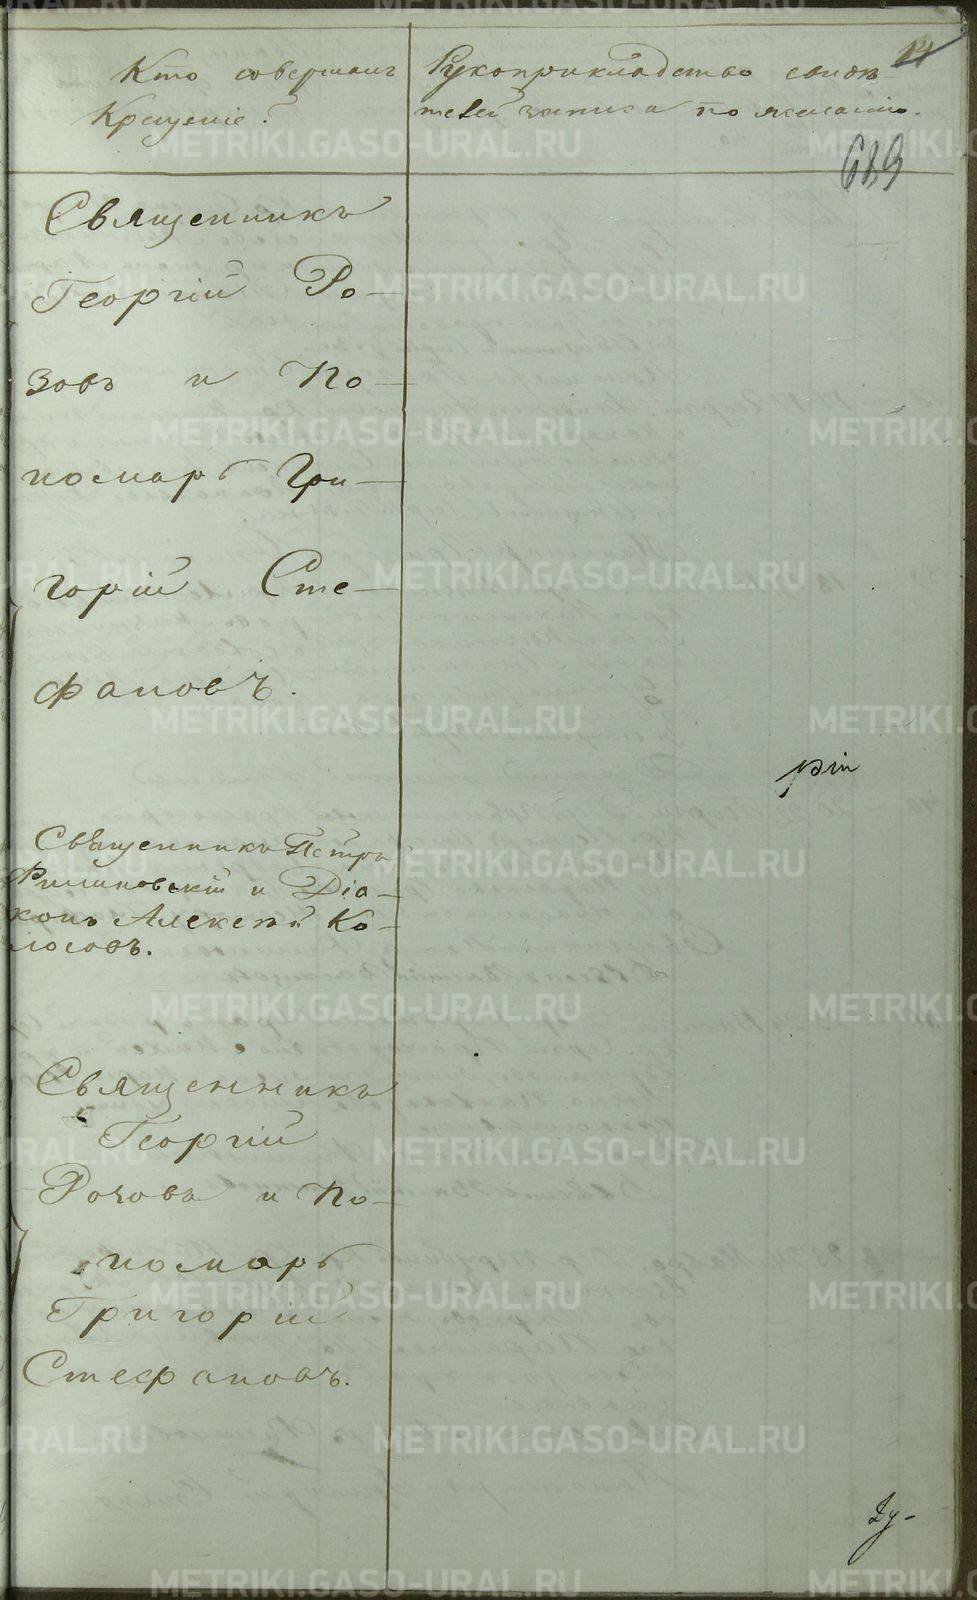 14
Кто совершалъ
Крещеніе?
Рукоприкладство свидѣ-
телей записи по желанію.
689
Священникъ
Георгій Ро-
зовъ и По-
номарь Гри-
горій Сте-
фановъ.
рiи
Священникъ Петръ
Филиповскій и Діа-
конъ Алексѣй Ко-
лосовъ.
Священникъ
Георгій
Розовъ и По-
номарь
Григорій
Стефановъ.
METRIKI.GASO-URAL.RU